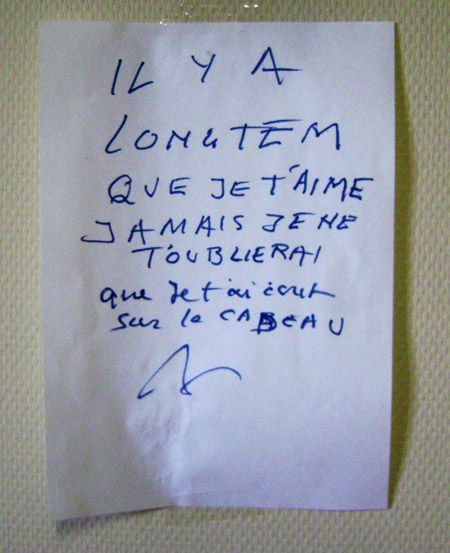 IL Y A
LONGTEM
QUE JE T'AIME
JAMAIS JE NE
T'OUBLIERAI
que Je t'ai écrit
sur le CADEAU